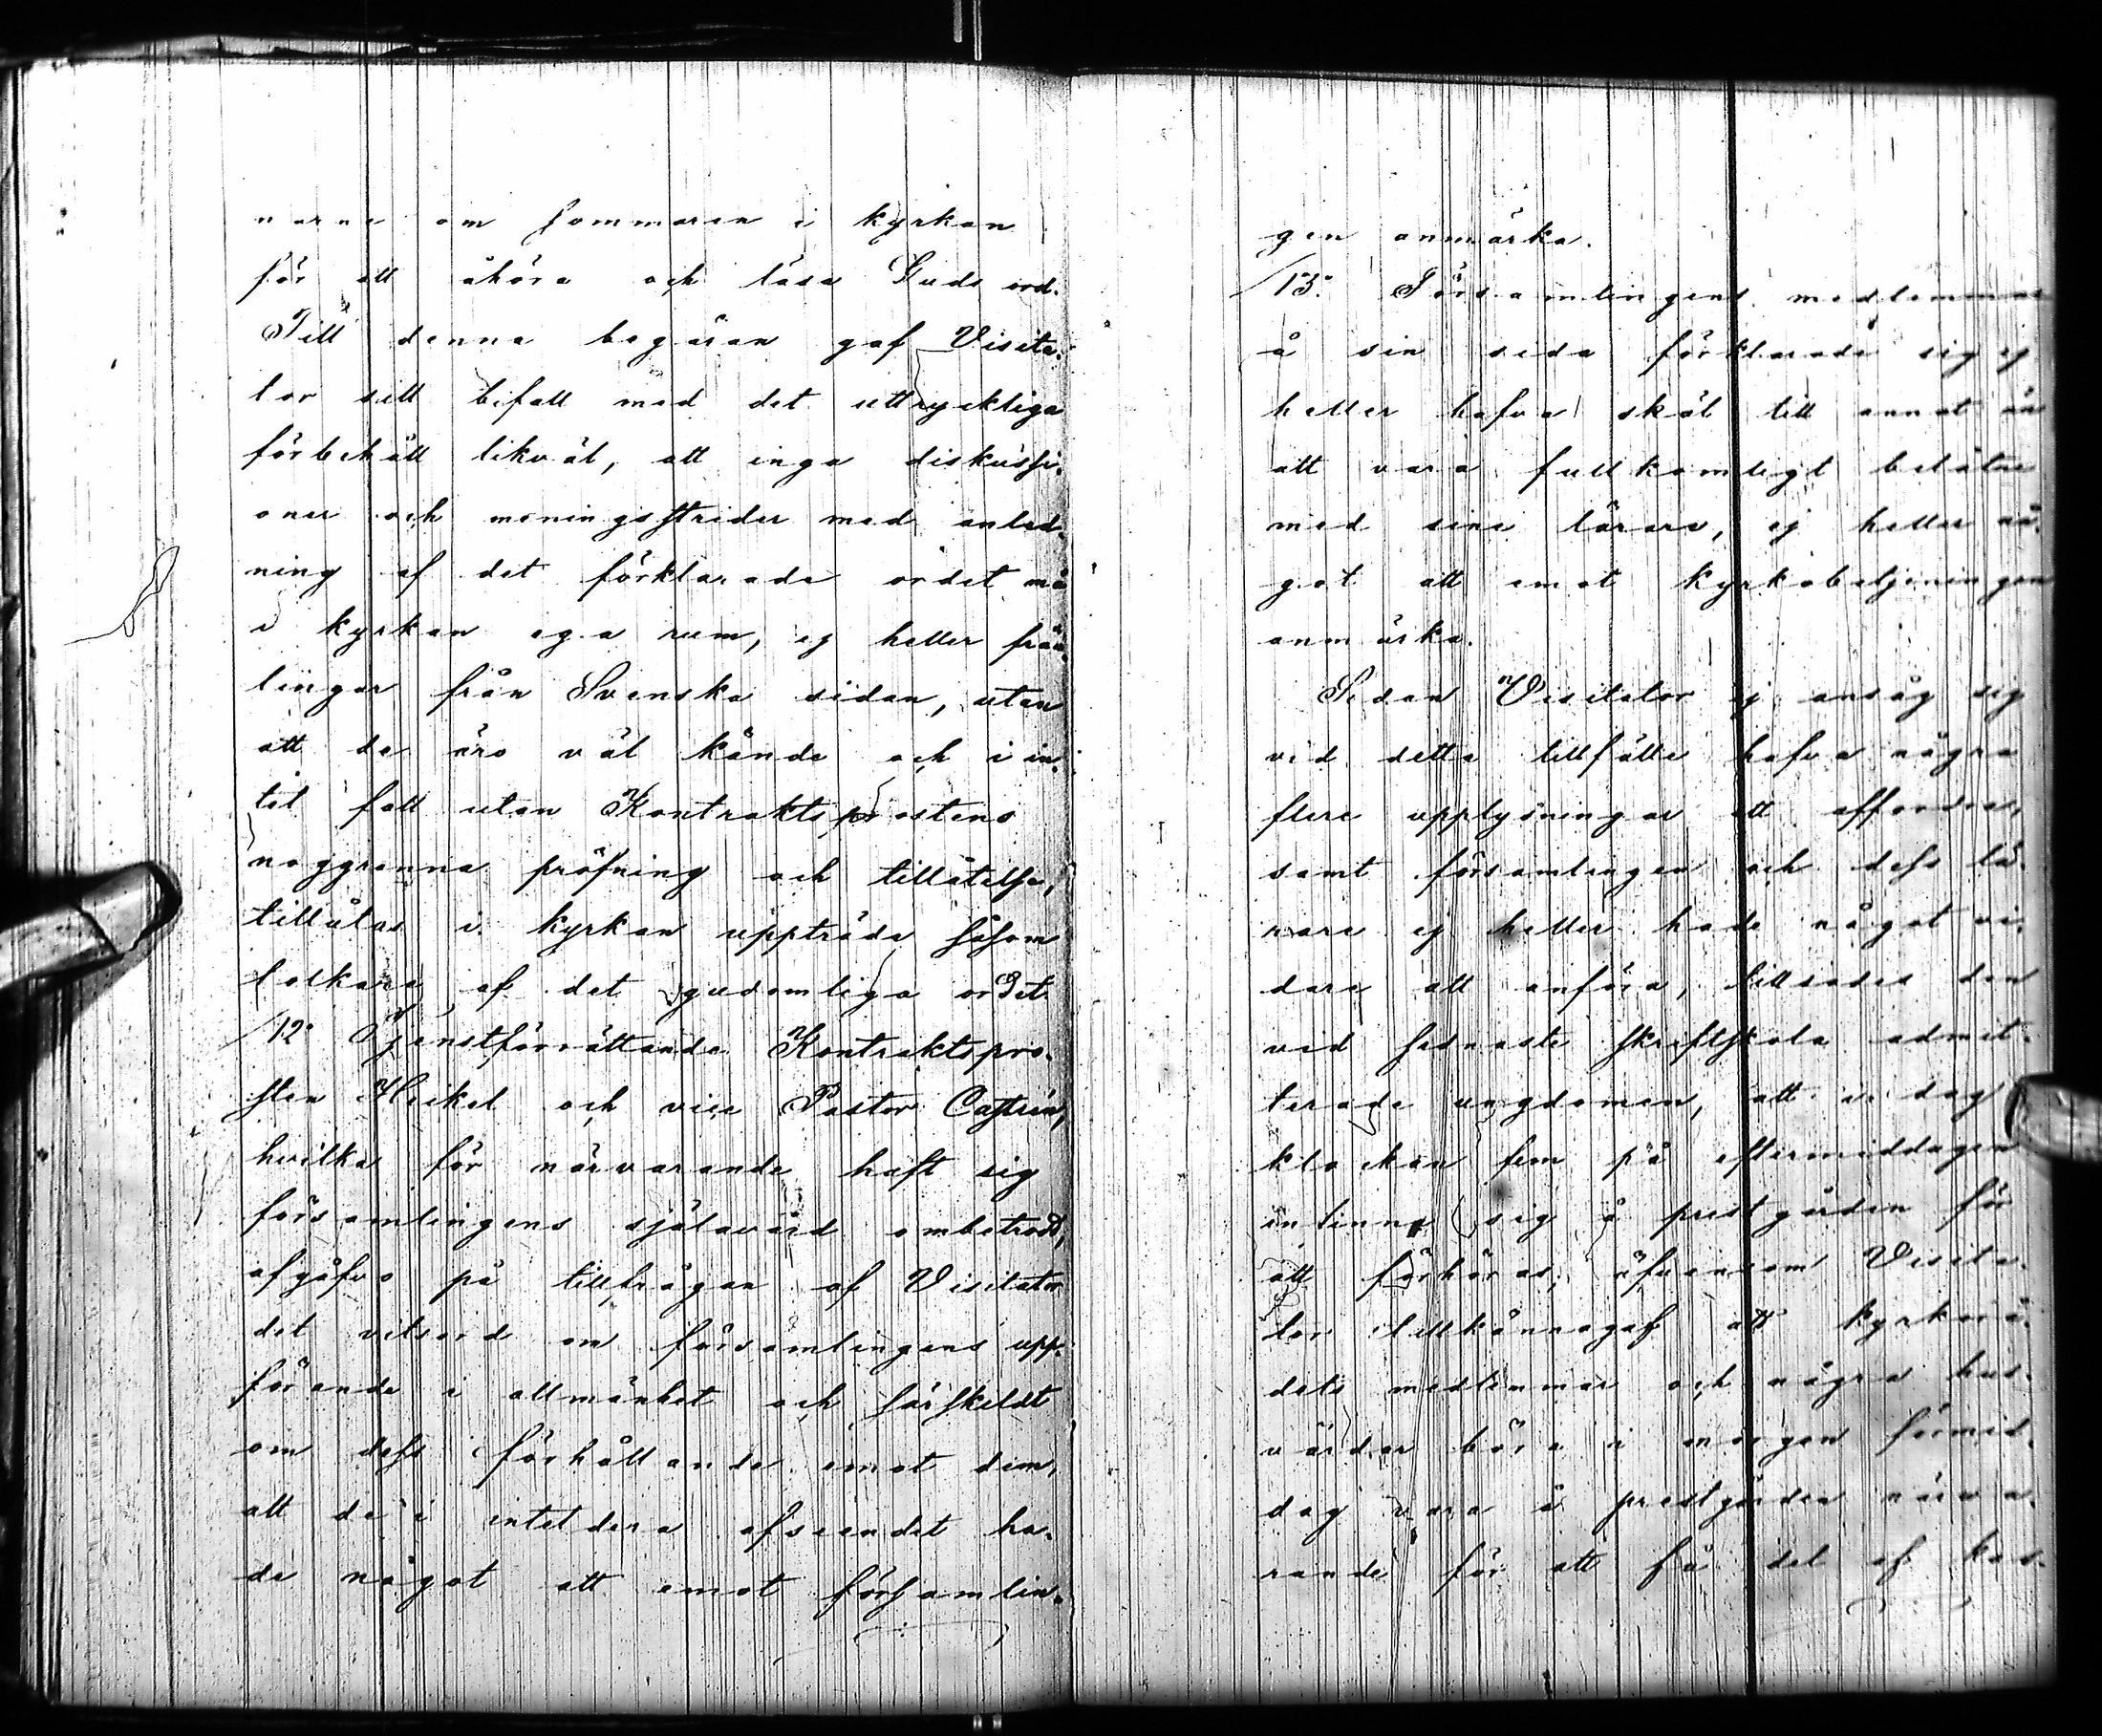 narne om sommaren i kyrkan
för att åhöra och läsa Guds ord.
Till denna begäran gaf Visita-
tor sitt bifall med det uttryckliga
förbehåll likväl, att inga diskussi-
oner och meningsstrider med anled-
ning af det förklarade ordet må
i kyrkan ega rum, ej heller från-
lingar från Svenska sidan, utan
att de äro väl kände och i in-
tet fall utan Kontraktsprostens
noggranna pröfning och tillåtelse,
tillåtas i kyrkan uppträda såsom
tolkare af det gudomliga ordet.
12. Tjenstförrättande Kontraktspro-
sten Heikel och vice Pastor Castrén,
hvilka för närvarande haft sig
församlingens själavård ombetrodd,
afgåfvo på tillfrågan af Visitator
det vitsord om församlingens upp-
förande i allmänhet och särskildt
om dess förhållande emot dem,
att de i intetdera afseendet ha-
de något att emot församlin-
gen anmärka.
13. Församlingens medlemmar
å sin sida förklarade sig ej
heller hafva skäl till annat än
att vara fullkomligt belåtne
med sine lärare, ej heller nå-
got att emot kyrkobetjeningen
anmärka.
Sedan Visitator ej ansåg sig
vid detta tillfälle hafva några
flere upplysningar att affordra,
samt församlingen och dess lä-
rare ej heller hade något vi-
dare att anföra, tillsades den
vid sednaste skriftskola admit-
terade ungdomen, att i dag
klockan fem på eftermiddagen
infinna sig å prestgården för
att förhöras, äfvensom Visita-
tor tillkännagaf att kyrkorå-
dets medlemmar och några hus-
värdar böra i morgon förmid-
dag vara å prestgården närva-
rande för att få del af kas-